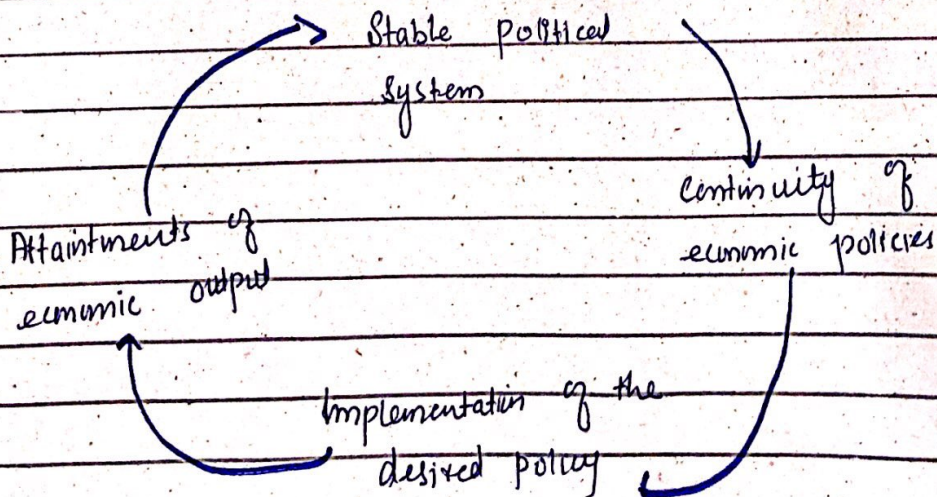 Stable political
system
Continuity of
economic policies
Implementation of the
desired policy
Attaintments of
economic output